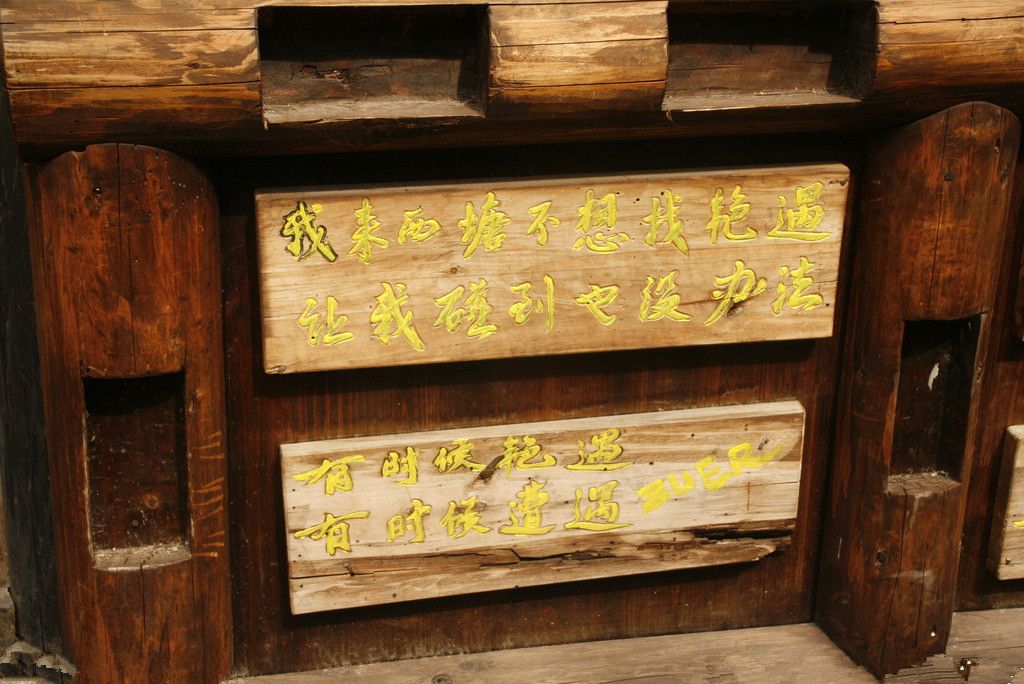 我来西塘不想找艳遇
让我碰到也没办法
有时候艳遇
有时候遭遇 BUER